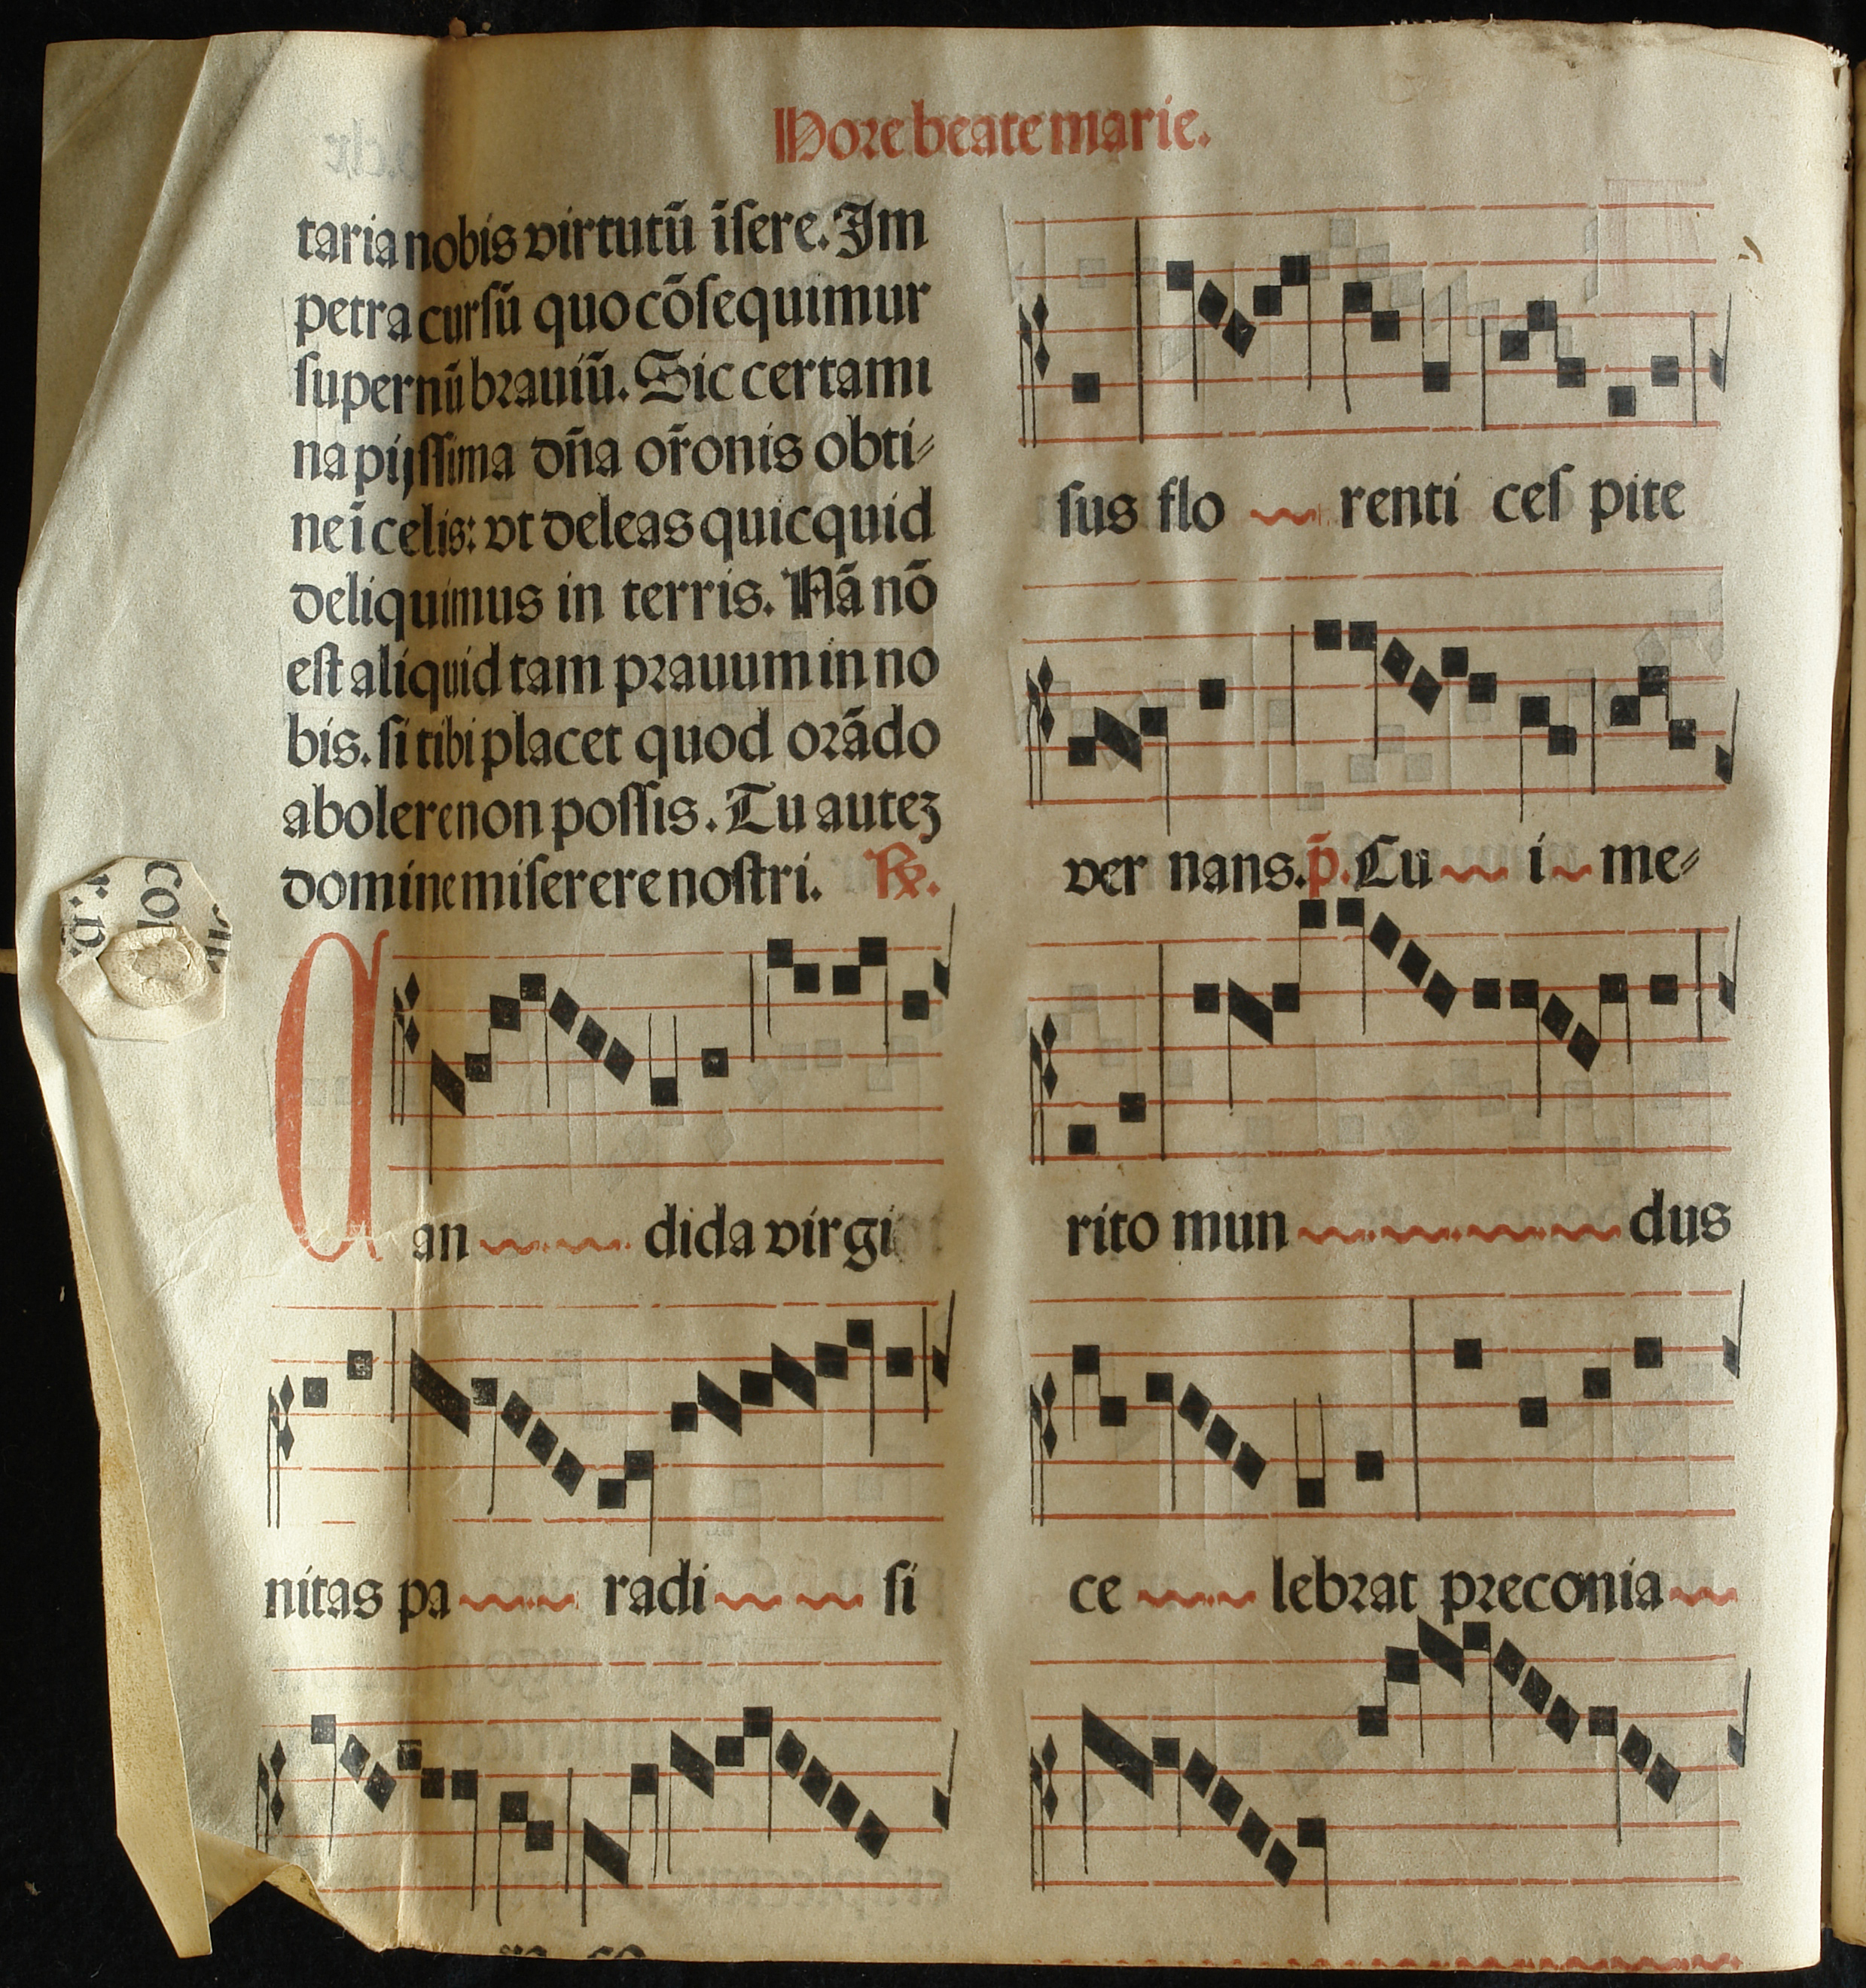 Hore beate marie.
taria nobis virtutū īſere. Im
petra curſū quo cōſequimur
ſupernū brauiū. Sic certami
na pijſſima dn̄a or̄onis obti⸗
ne ī celis: vt deleas quicquid
deliquimus in terris. Nā nō
eſt aliquid tam prauum in no
bis. ſi tibi placet quod orādo
abolere non poſſis. Tu autez
domine miſerere noſtri. ℟.
Can dida virgi
nitas pa radi ſi
ſus flo renti ceſ pite
ver nans. p̄. Cu i me⸗
rito mun dus
ce lebrat preconia